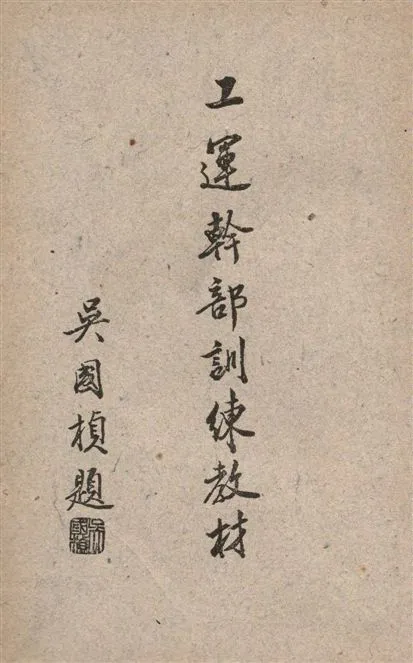 工運幹部訓練教材
吳國楨題